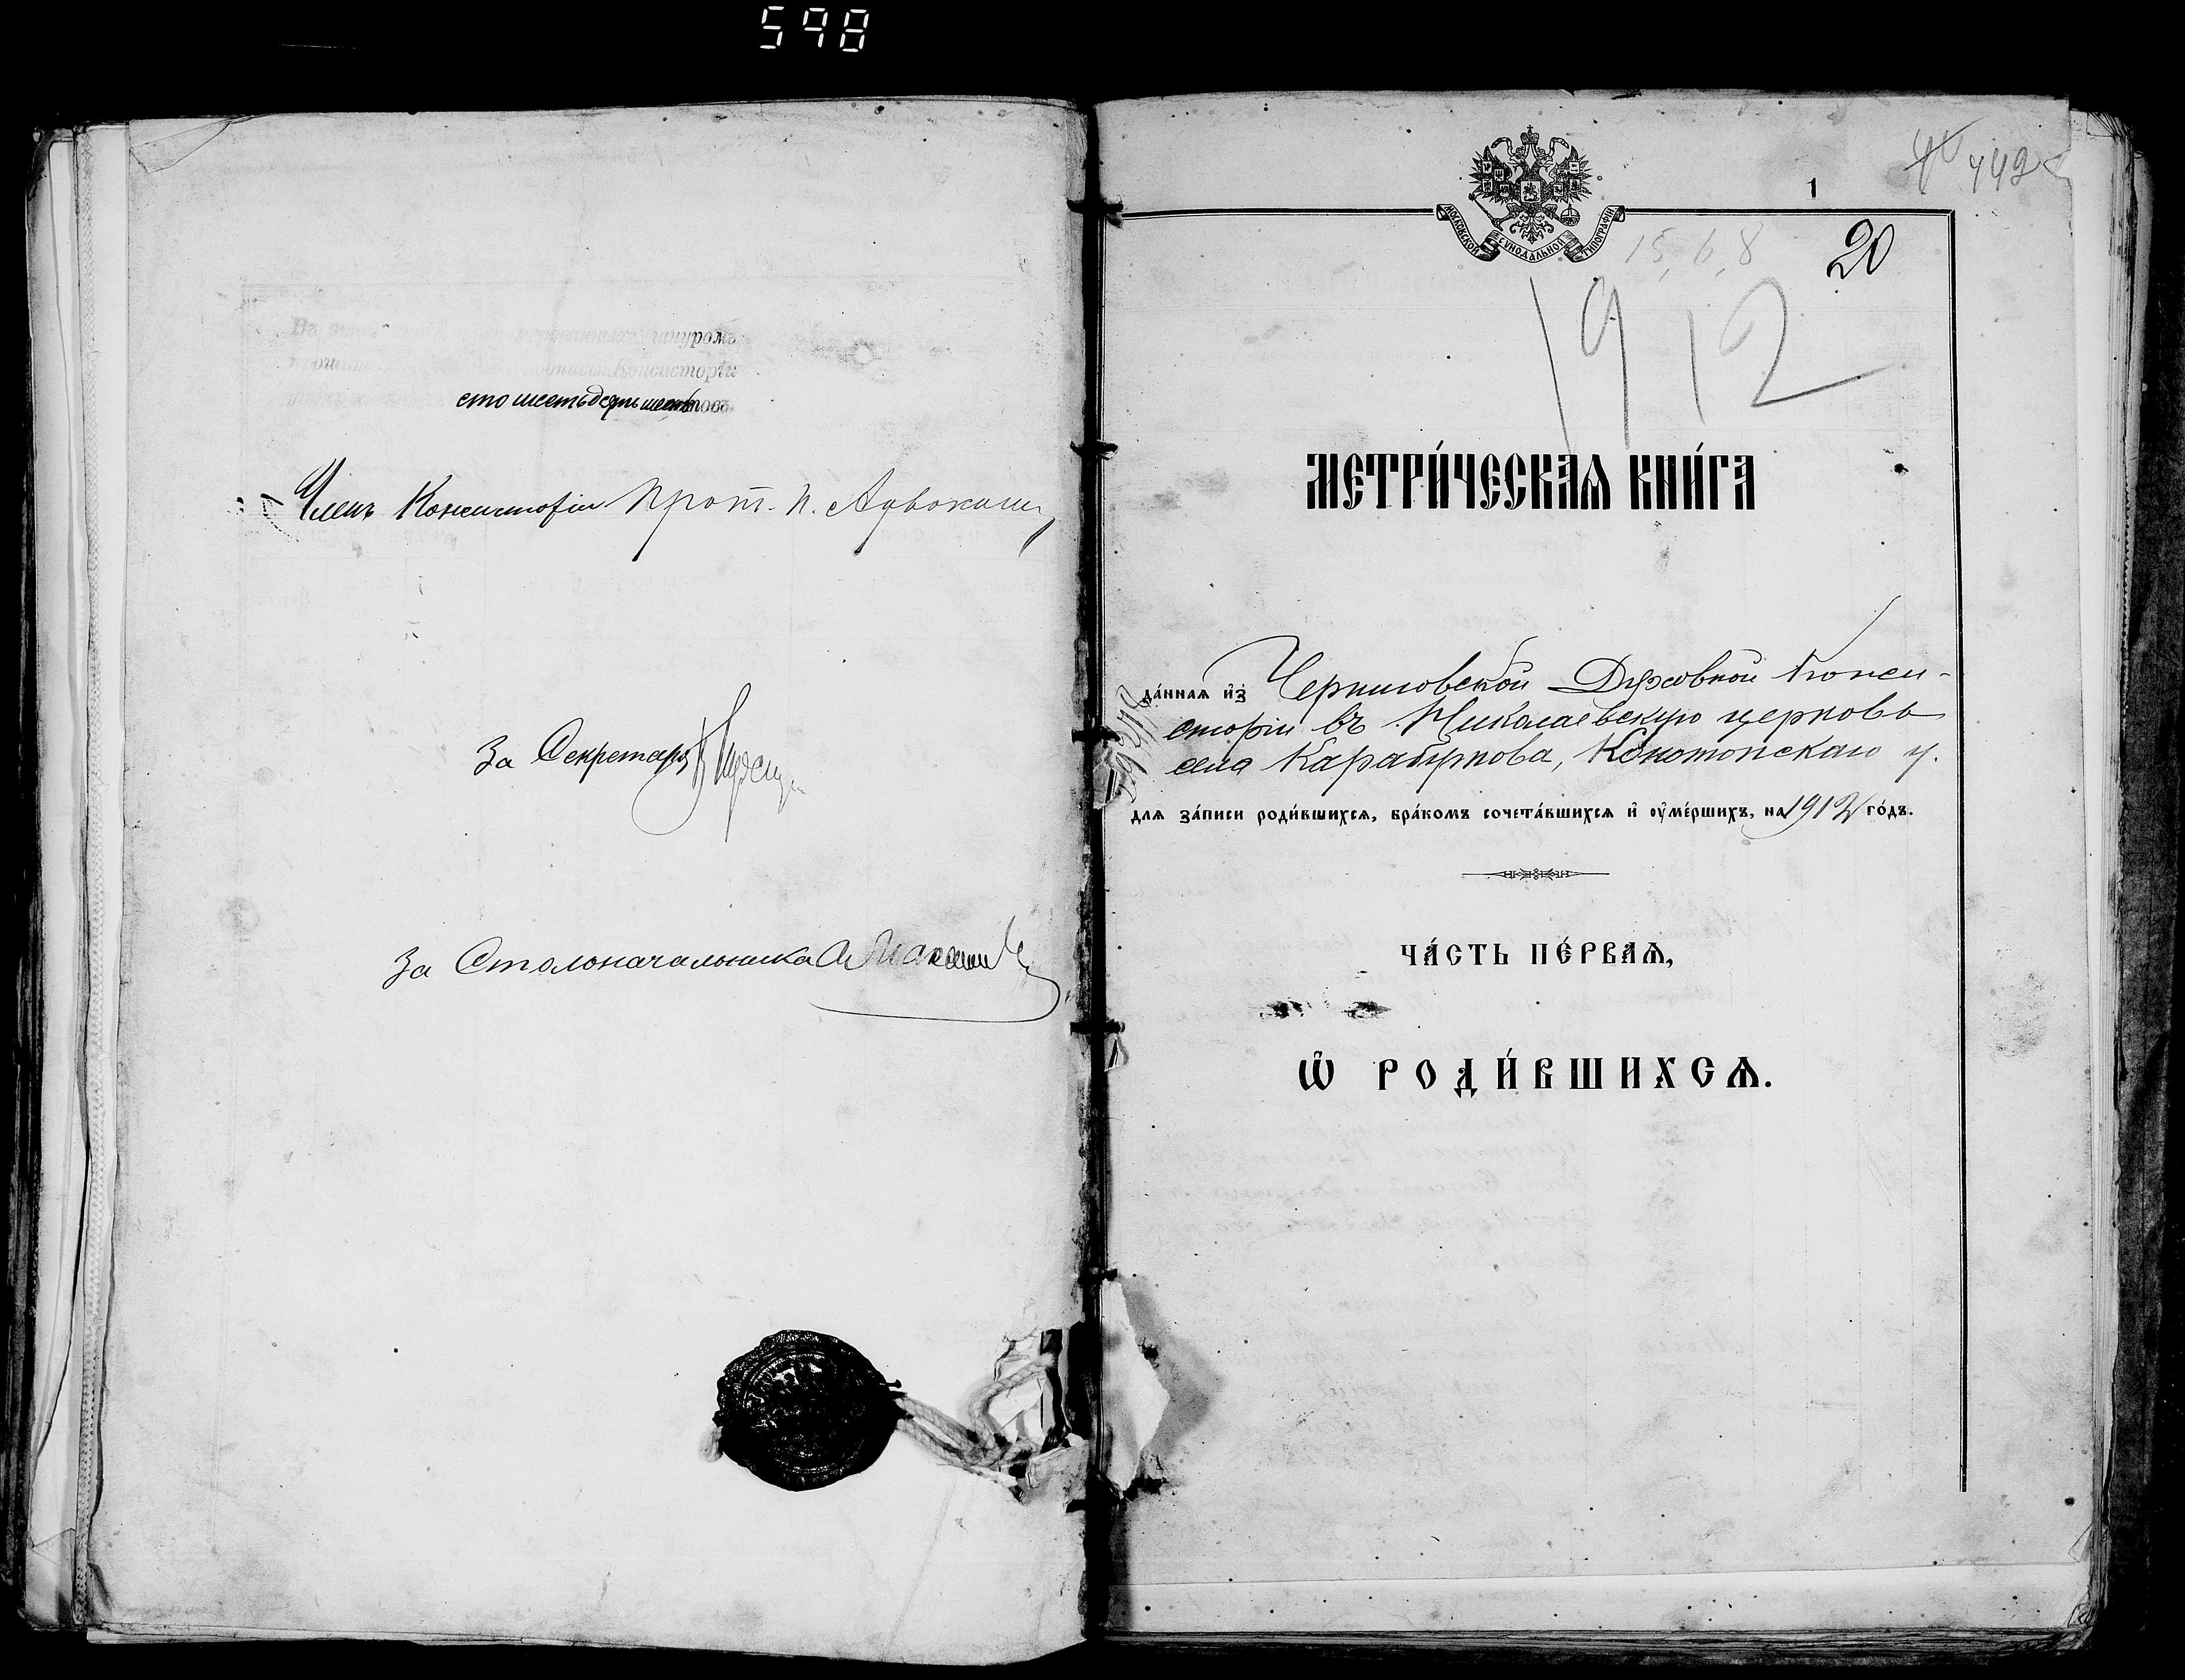 598
шнуромъ
Консисторіи
сто шестьдесятъ шесть
Членъ Консисторіи Прот. П.
За Секретаря
За Столоначальника
442
1
МОСКОВСКОЙ СѴНОДАЛЬНОЙ ТИПОГРАФІИ
15, 6, 8
20
1912
МЕТРИ́ЧЕСКАѦ КНИ́ГА
да́ннаѧ и҆з̾ Черниговской Духовной Конси-
сторіи въ Николаевскую церковь
села Карабутова, Конотопскаго у.
для за́писи роди́вшихсѧ, бра́комъ сочета́вшихсѧ и҆ оу҆ме́ршихъ, на 1912 го́дъ.
ЧА́СТЬ ПЕ́РВАѦ,
Ѽ РОДИ́ВШИХСѦ.